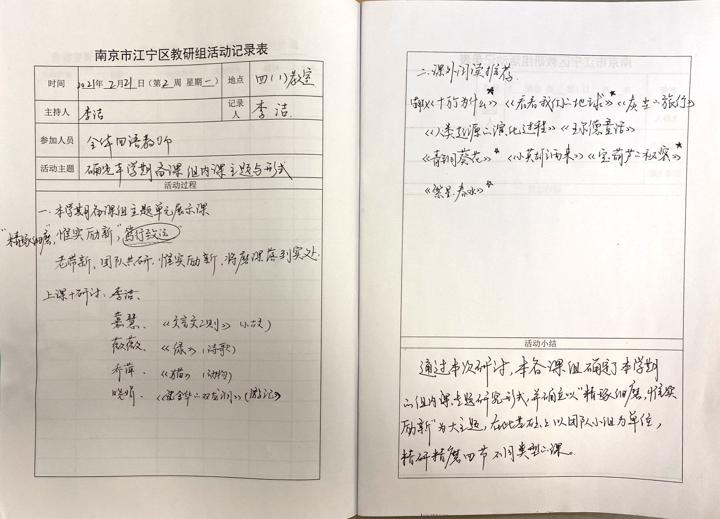 南京市江宁区教研组活动记录表
时间 2021年2月21日(第2周 星期一) 地点 四(1)教室
主持人 李洁 记录人 李洁.
参加人员 全体四语教师
活动主题 确定本学期备课组内课主题与形式
活动过程
一.本学期备课组主题单元展示课
"精琢细磨,惟实励新",
老带新、团队共研.惟实励新、将磨课落到实处.
上课+研讨、李洁、
嘉慧、《文言文二则》(小古文)
薇薇、《绿》(诗歌)
乔萍、《猫》(动物)
晓娟、《金华的双龙洞》(游记)
二.课外阅读推荐.
《十万个为什么》* 《看看我们的地球》* 《灰尘的旅行》
《人类起源的演化过程》 《王尔德童话》
《青铜葵花》* 《小英雄雨来》* 《宝葫芦的秘密》*
《繁星春水》*
活动小结
通过本次研讨,本备课组确定了本学期
的组内课主题研究形式,并确定以"精琢细磨,惟实
励新"为大主题,在此基础上以团队小组为单位,
精研精磨四节不同类型的课。